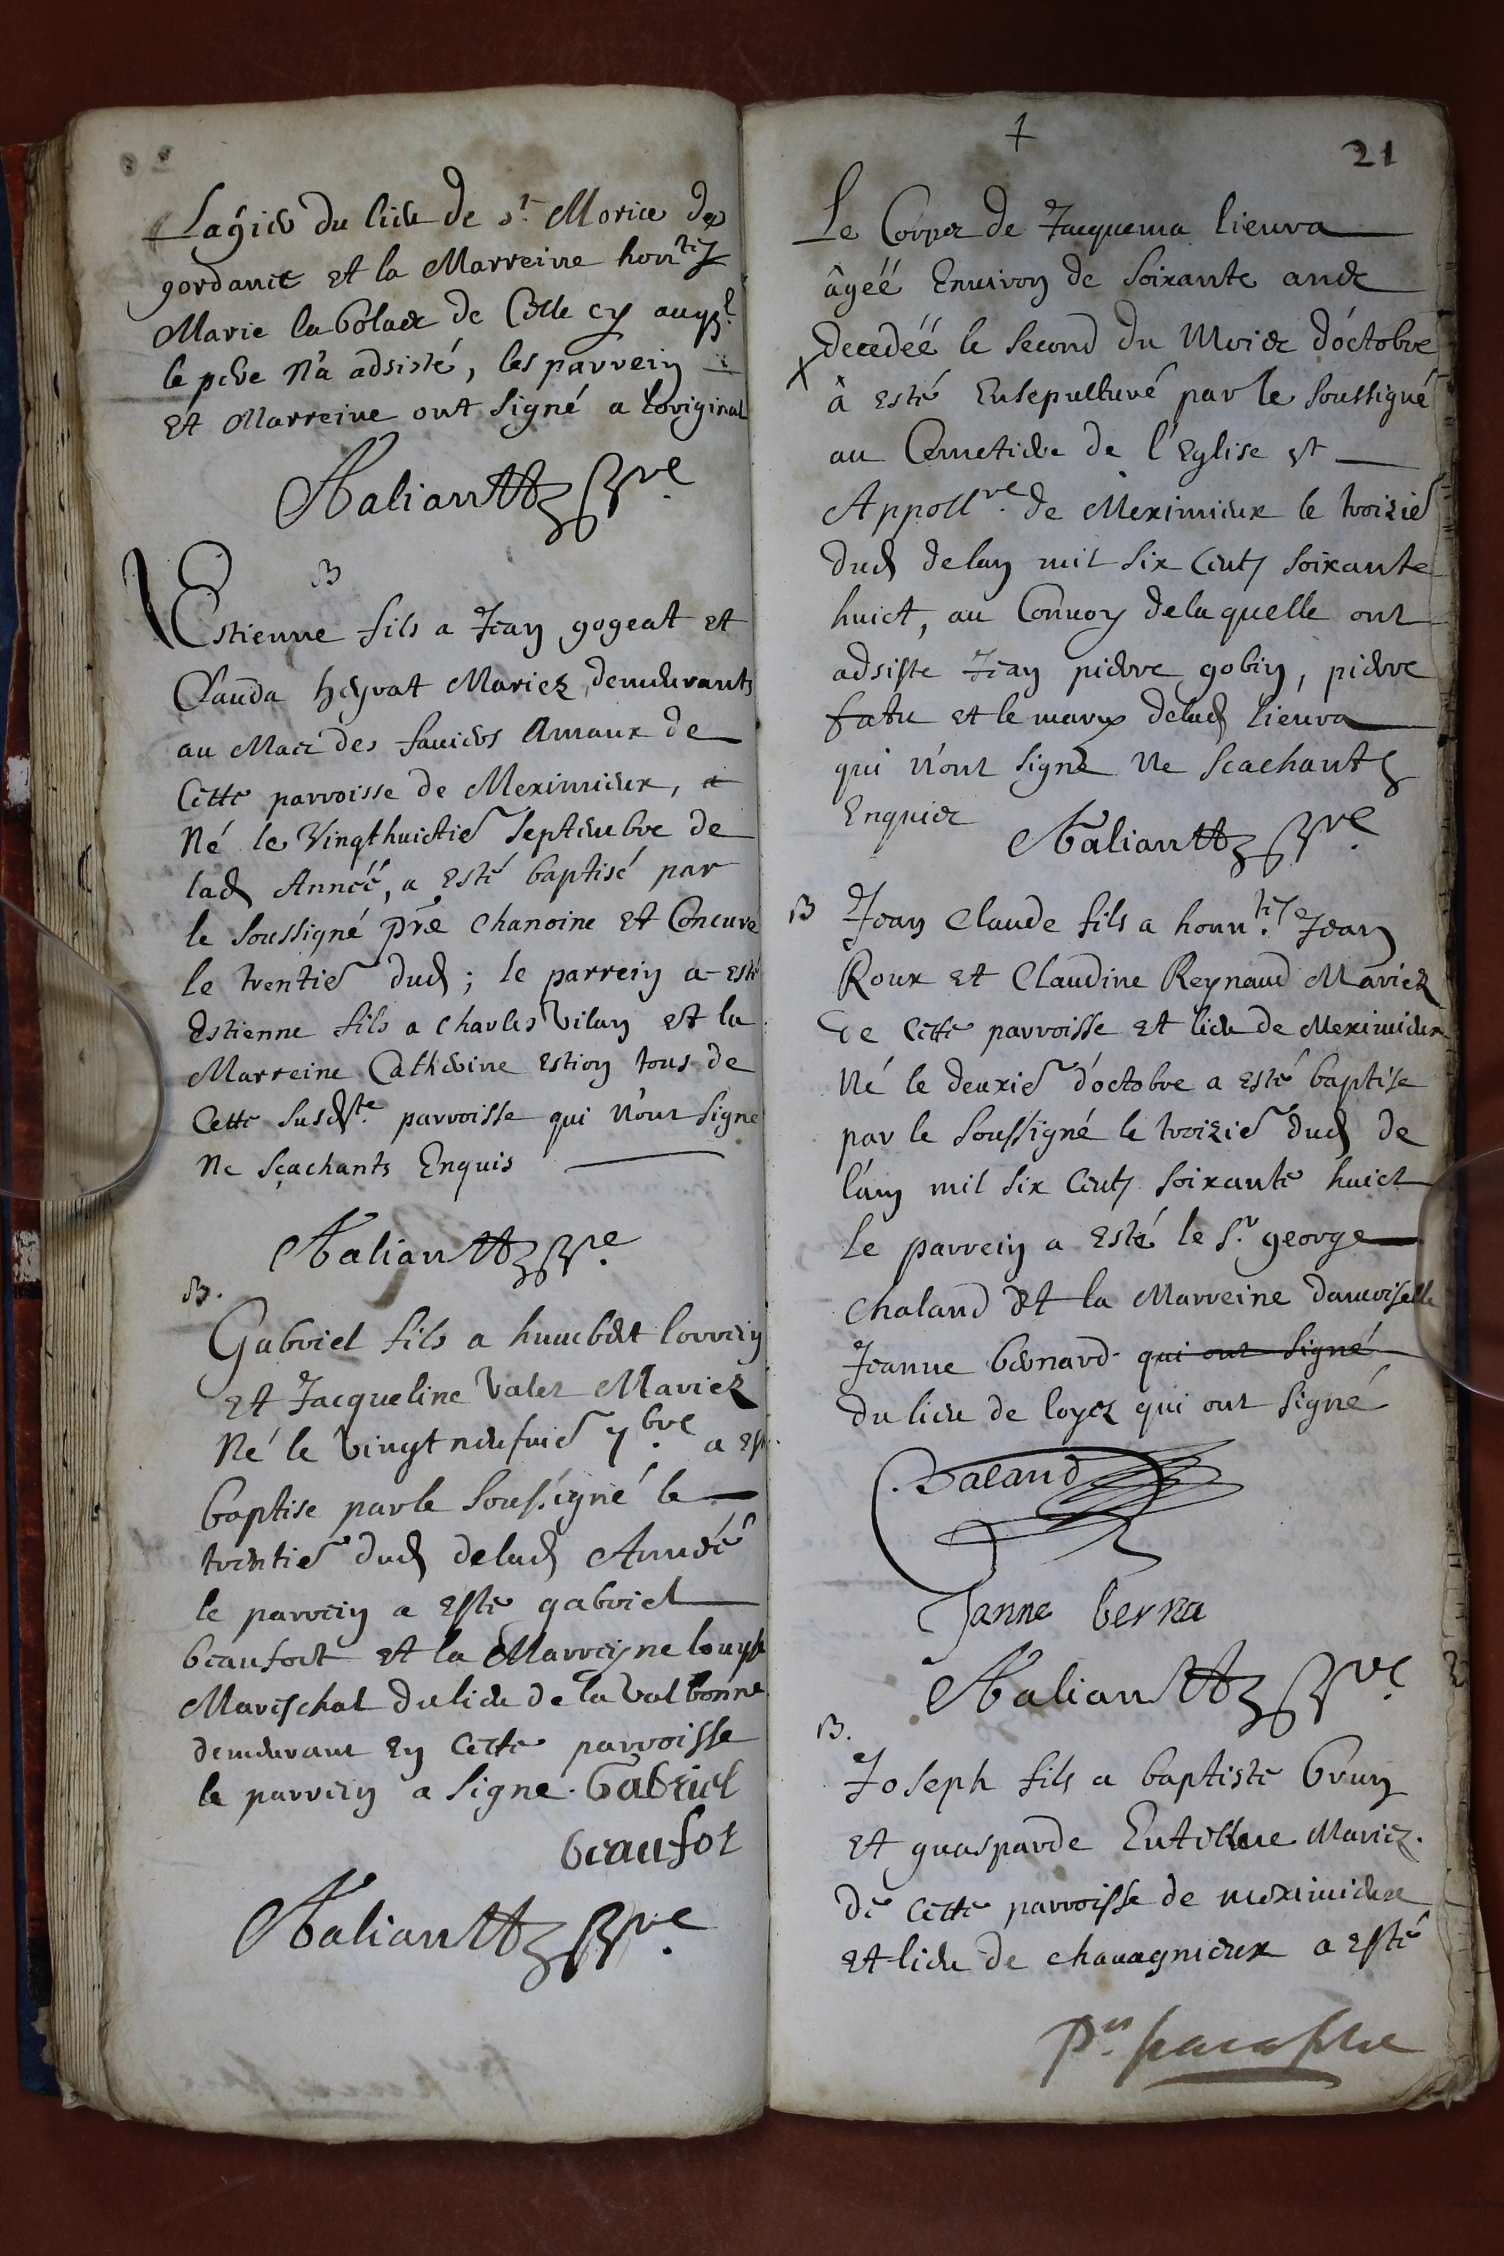 Lagier du lieu de st Morice de
gordanne et la Marreine honte
Marie labolace de Celle cy auql
le pere n'a adsisté, les parrein
et Marreine ont signé a loriginal
Aaliantt pre
B
Estienne fils a Jean gogeat et
Clauda heyrat Mariez, demeurants
au Maz des faviers Amaux de
Cette parroisse de Meximieux, a
Né le Vingthuictie Septembre de
lad Année, a esté baptisé par
le soussigné pre chanoine et Concuré
le trentie dud; le parrein a esté
Estienne fils a Charles Vilan et la
Marreine Catherine estion tous de
Cette susdte parroisse qui n'ont signe
Ne sçachants Enquis
Aaliantt pre
B.
Gabriel fils a humbert lorrein
et Jacqueline Valet Mariez
Né le vingt neufvie 7bre a est
baptise par le soussigné le
trentie dud delad Année
le parrein a esté gabriel
beaufort et la Marreyne louyse
Mareschal du lieu de la valbonne
demeurant en Cette parroisse
le parrein a signé. Gabriel
beaufor
Aaliantt pre
21
Le Corps de Jacquema lieura
âgéé Environ de soixante ans
decedéé le second du Mois d'octobre
X
à esté Ensepulturé par le soussigné
au Cemetiere de l'Eglise st
Appollre de Meximieux le troizie
dud delan mil six Cents soixante
huict, au Convoy delaquelle ont
adsiste Jean pierre gobin, pierre
fatu et le mary delad lieura
qui n'ont signé Ne scachants
Enquis
Aaliantt pre
B
Jean Claude fils a honnte Jean
Roux et Claudine Reynaud Mariez
de Cette parroisse et lieu de Meximieux
Né le deuxie d'octobre a esté baptise
par le soussigné le troizie dud de
l'an mil six Cents soixante huict
le parrein a esté le sr george
chaland et la Marreine damoiselle
Jeanne bernard qui ont signé
du lieu de loyes qui ont signé
Janne berna
Aaliantt pre
B.
Joseph fils a baptiste brun
et guasparde Mariez.
de Cette parroisse de meximieux
et lieu de chavagnieux a esté